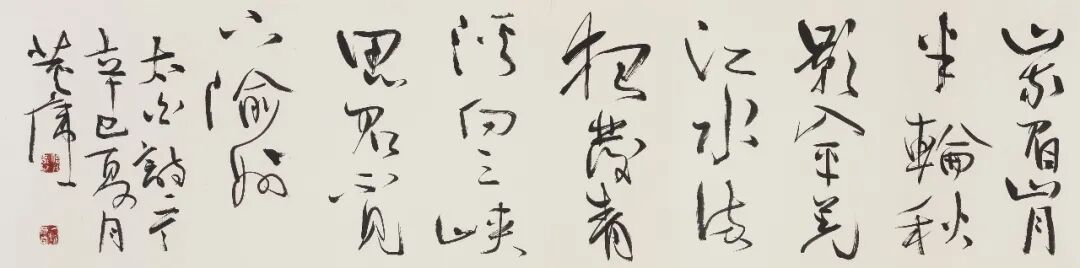 峩眉山月
半輪秋
影入平羌
江水流
夜發清
溪向三峽
思君不見
下渝州
太白詩
辛巳夏月